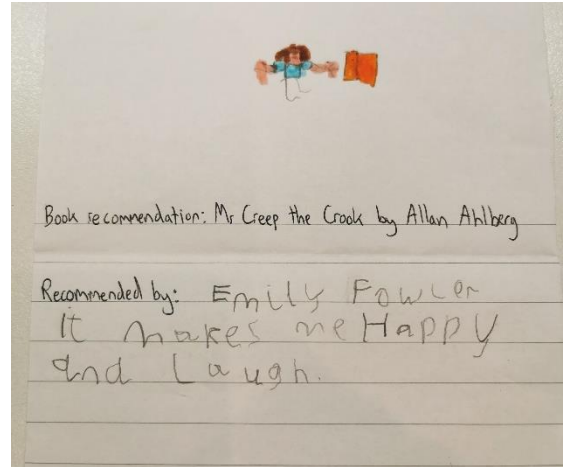 Book recommendation: Mr Creep the Crook by Allan Ahlberg
Recommended by: Emily Fowler
It makes me Happy
and Laugh.